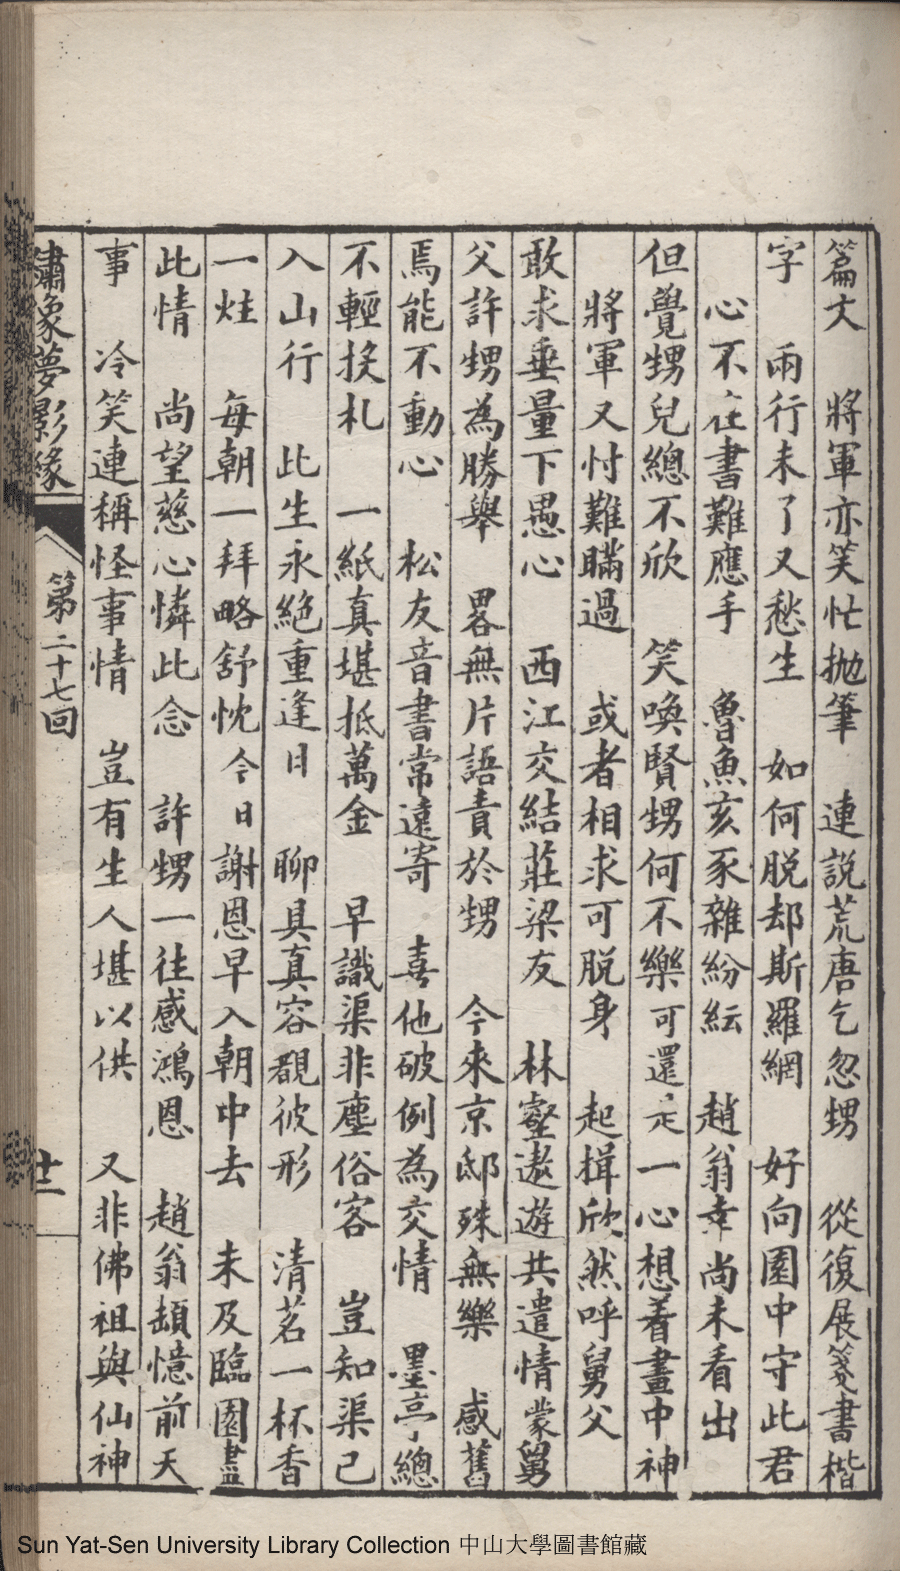 篇大　將軍亦笑忙抛筆　連説荒唐乞恕甥　從復展箋書楷
字　兩行未了又愁生　如何脱却斯羅網　好向園中守此君
心不在書難應手　魯魚亥豕雜紛紜　趙翁幸尚未看出
但覺甥兒總不欣　笑喚賢甥何不樂　可還是一心想着畫中神
將軍又忖難瞞過　或者相求可脱身　起揖欣然呼舅父
敢求垂量下愚心　西江交結莊梁友　林壑遨遊共遣情　蒙舅
父許甥為勝舉　畧無片語責於甥　今來京邸殊無樂　感舊
焉能不動心　松友音書常遠寄　喜他破例為交情　墨亭總
不輕投札　一紙真堪抵萬金　早識渠非塵俗客　豈知渠已
入山行　此生永絕重逢日　聊具真容覩彼形　清茗一杯香
一炷　每朝一拜略舒忱　今日謝恩早入朝中去　未及臨園盡
此情　尚望慈心憐此念　許甥一往感鴻恩　趙翁頡憶前天
事　冷笑連稱怪事情　豈有生人堪以供　又非佛祖與仙神
繡像夢影緣　第二十七回　廿二
Sun Yat-Sen University Library Collection 中山大學圖書館藏